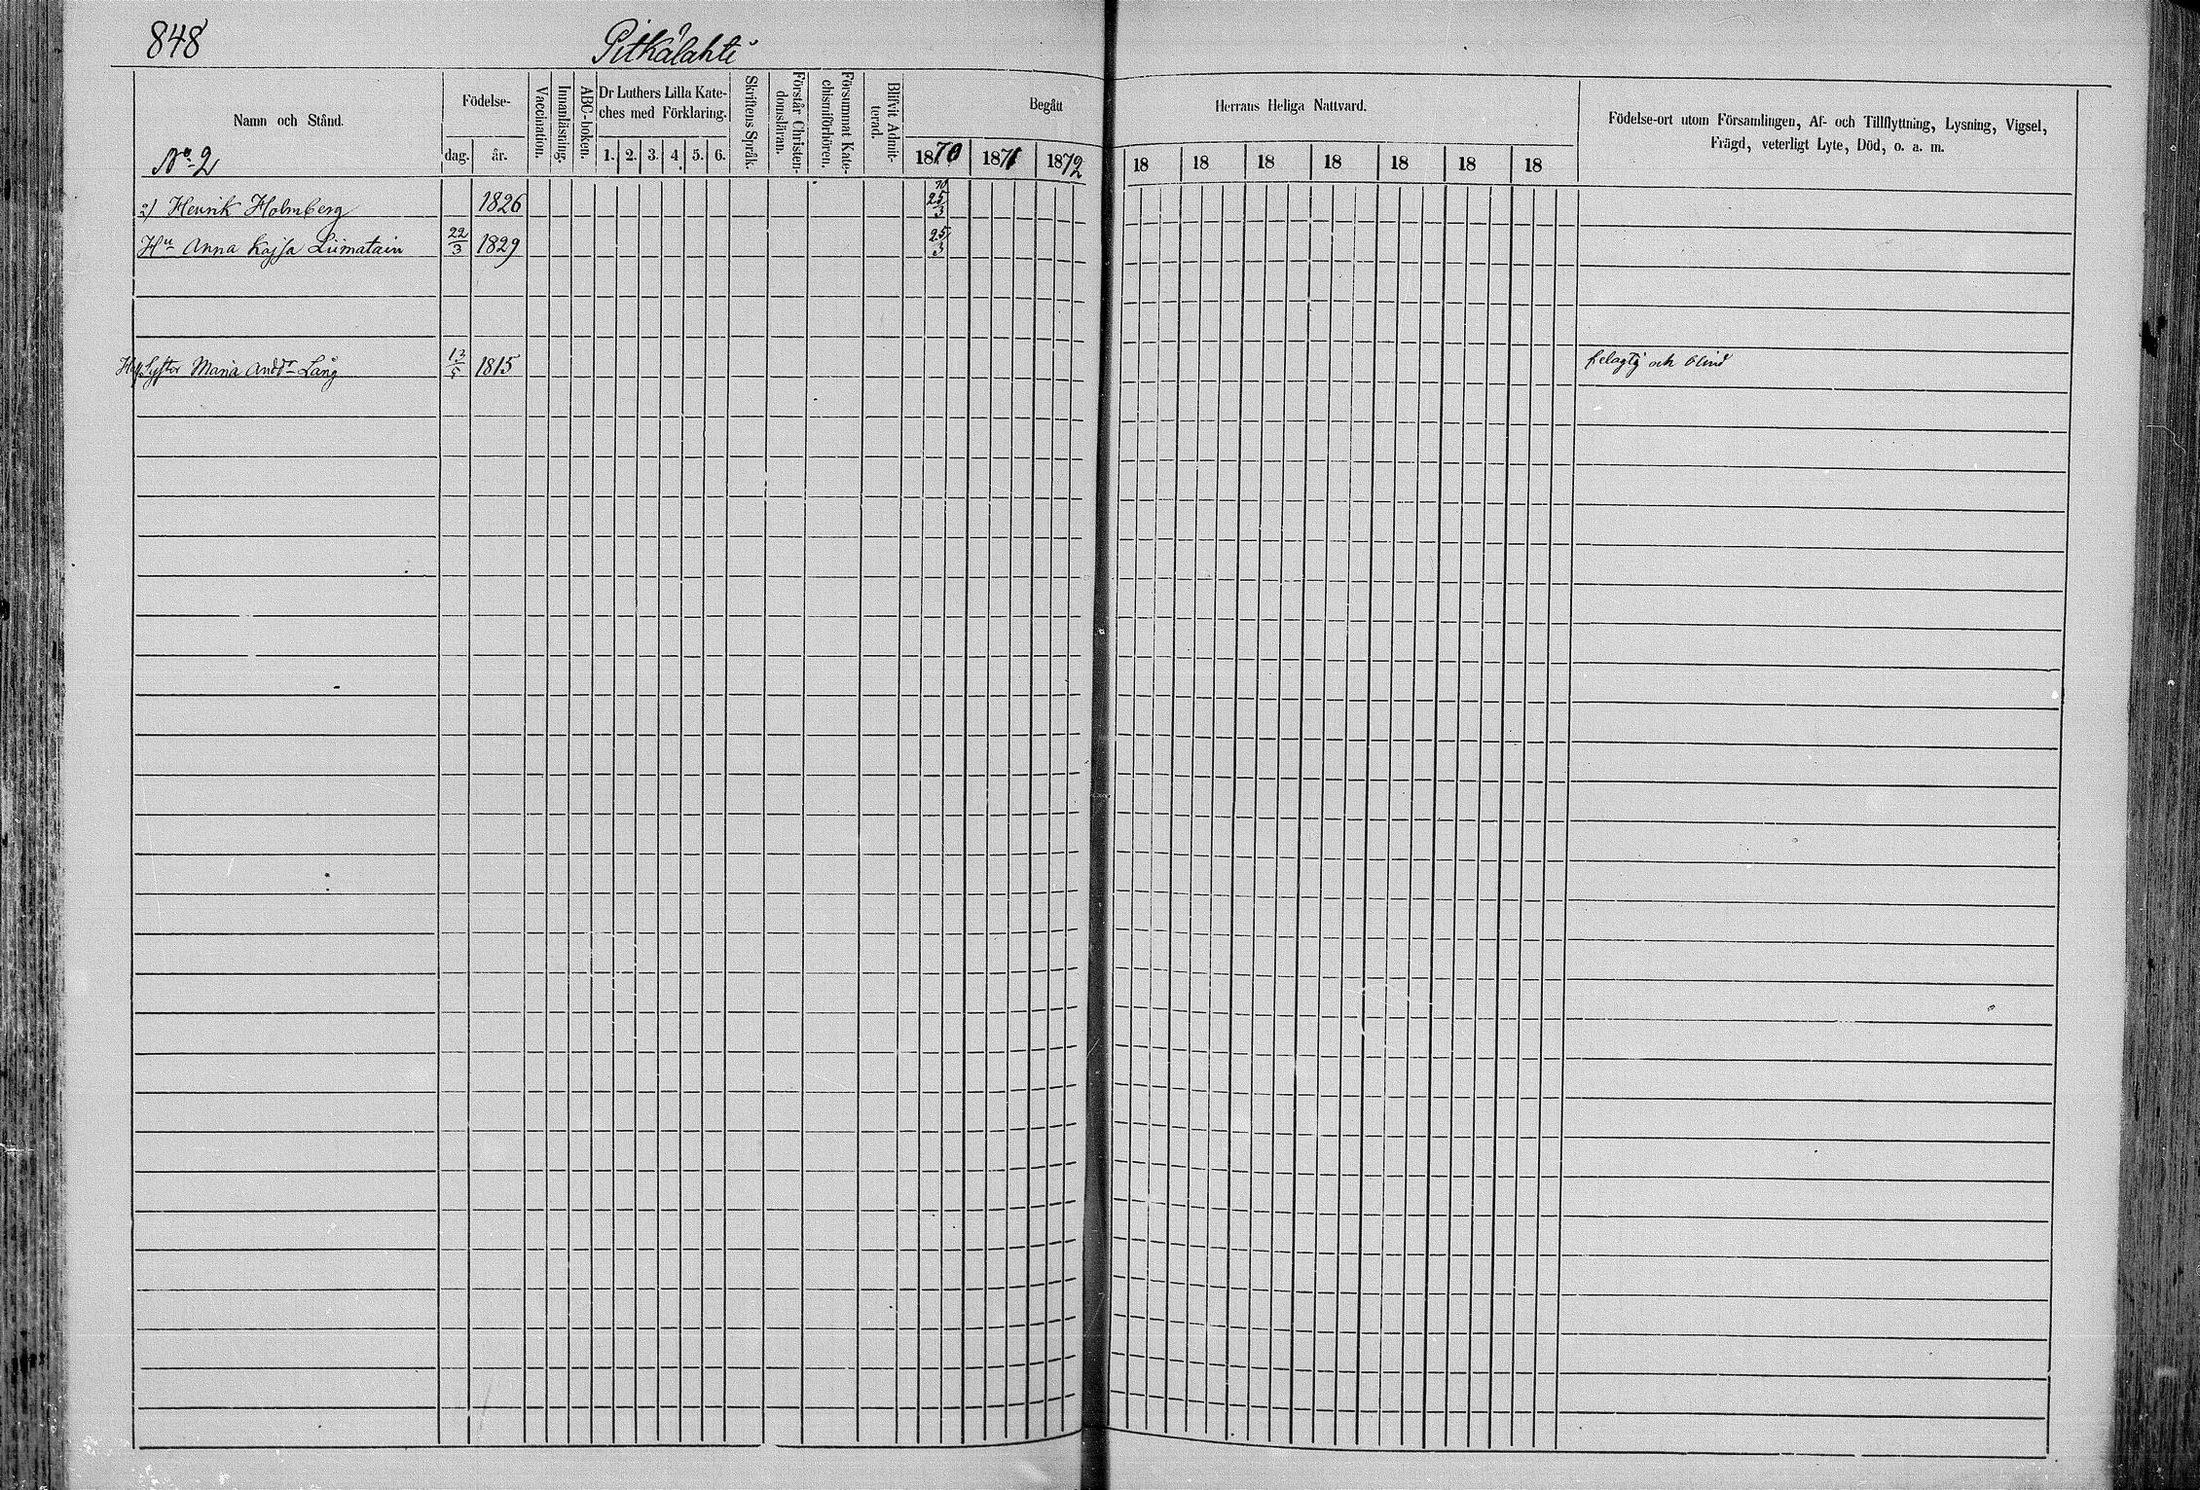 848
Pitkälahti
Namn och Stånd.
No 2
Födelse-
dag.
år.
Vaccination.
Innanläsning.
ABC-boken.
Dr Luthers Lilla Kate-
ches med Förklaring.
1. 2. 3. 4. 5. 6.
Skriftens Språk.
Förstår Christen-
domsläran.
Försummat Kate-
chismiförhören.
Blifvit Admit-
terad.
Begått
Herrans Heliga Nattvard.
1870 1871 1872 18 18 18 18 18 18 18
Födelse-ort utom Församlingen, Af- och Tillflyttning, Lysning, Vigsel,
Frägd, veterligt Lyte, Död, o. a. m.
2) Henrik Holmberg 1826 25/3
Hu Anna Kajsa Liimatain 22/3 1829 25/3
Syster Maria Andd:r Lång 12/5 1815 och blind